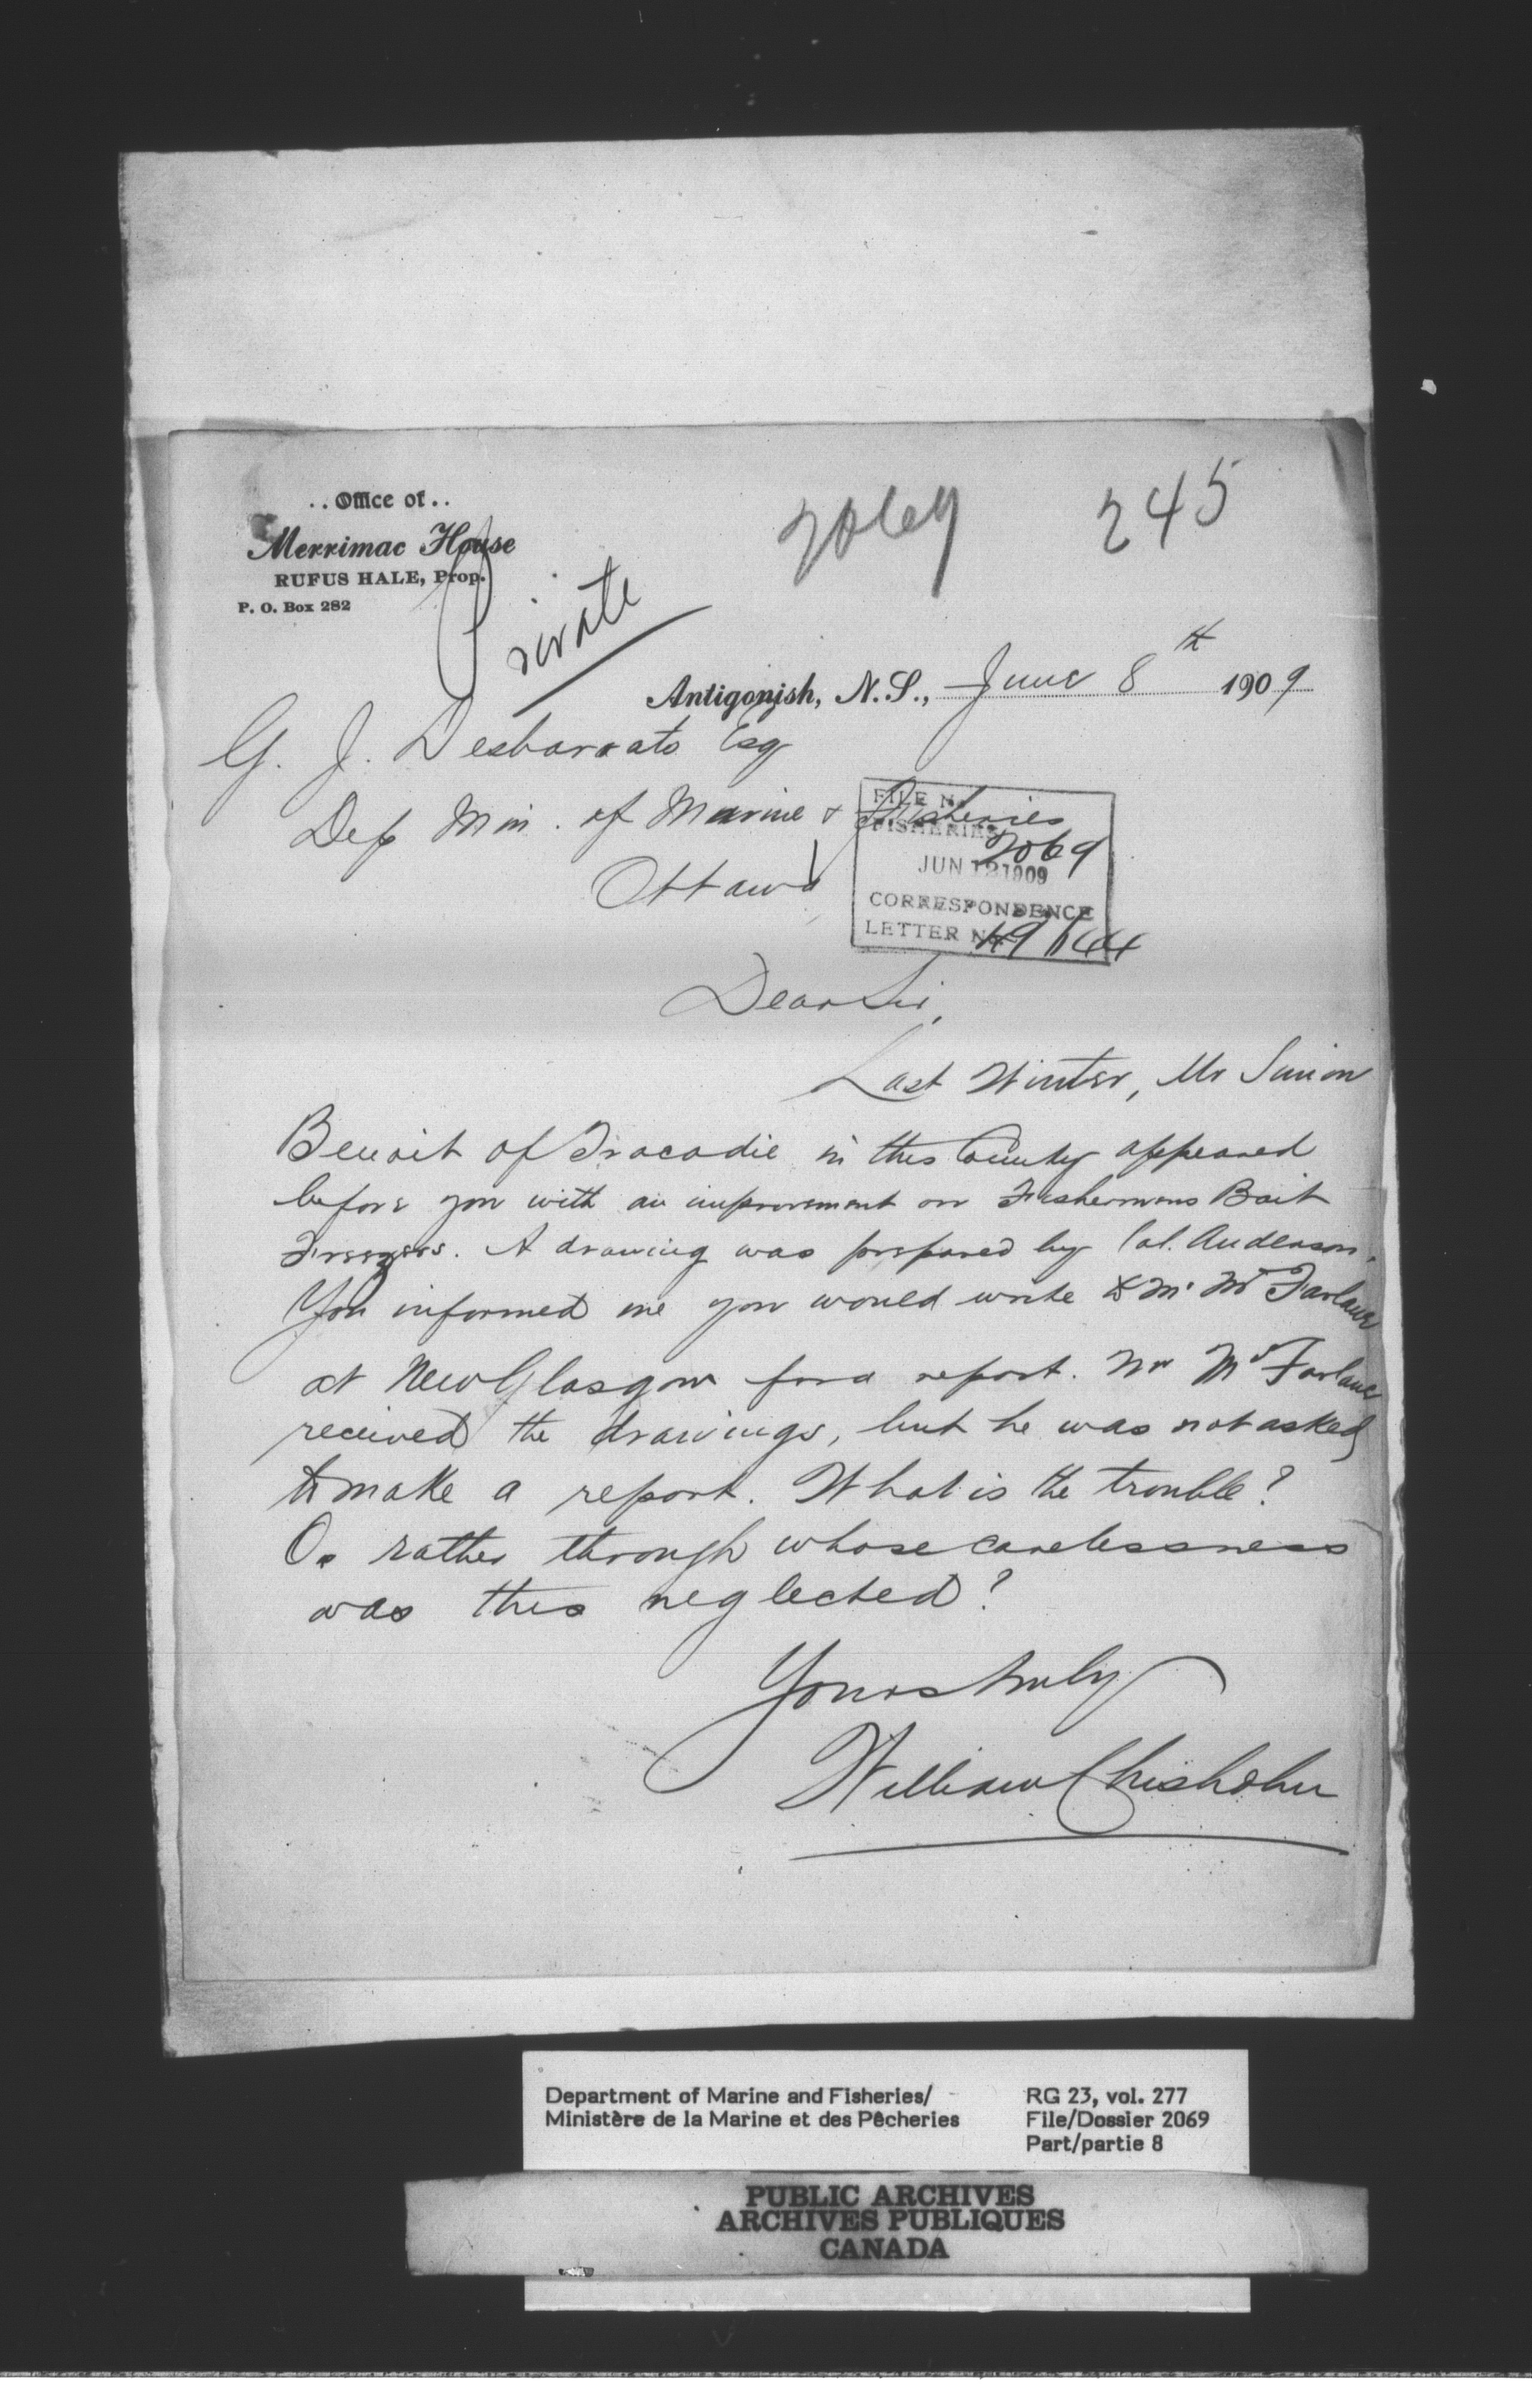 ..Office of..
Merrimac House
RUFUS HALE, Prop.
P. O. Box 282
Private
2069
245
Antigonish, N.S., June 8th 1909
G. J. Desbarats Esq
Dep Min. of Marine & Fisheries
Ottawa
FILE No.
FISHERIES
2069
JUN 12 1909
CORRESPONDENCE
LETTER No.
Dear Sir,
Last Winter, Mr Simion
Benoit of Tracadie in this County appeared
before you with an improvement on Fishermens Bait
Freezers. A drawing was prepared by Col. Anderson.
You informed me you would write to Mr McFarlane
at New Glasgow for a report. Mr McFarlane
received the drawings, but he was not asked
to make a report. What is the trouble?
Or rather through whose carelessness
was this neglected?
Yours truly
William Chisholm
Department of Marine and Fisheries/
Ministère de la Marine et des Pêcheries
RG 23, vol. 277
File/Dossier 2069
Part/partie 8
PUBLIC ARCHIVES
ARCHIVES PUBLIQUES
CANADA